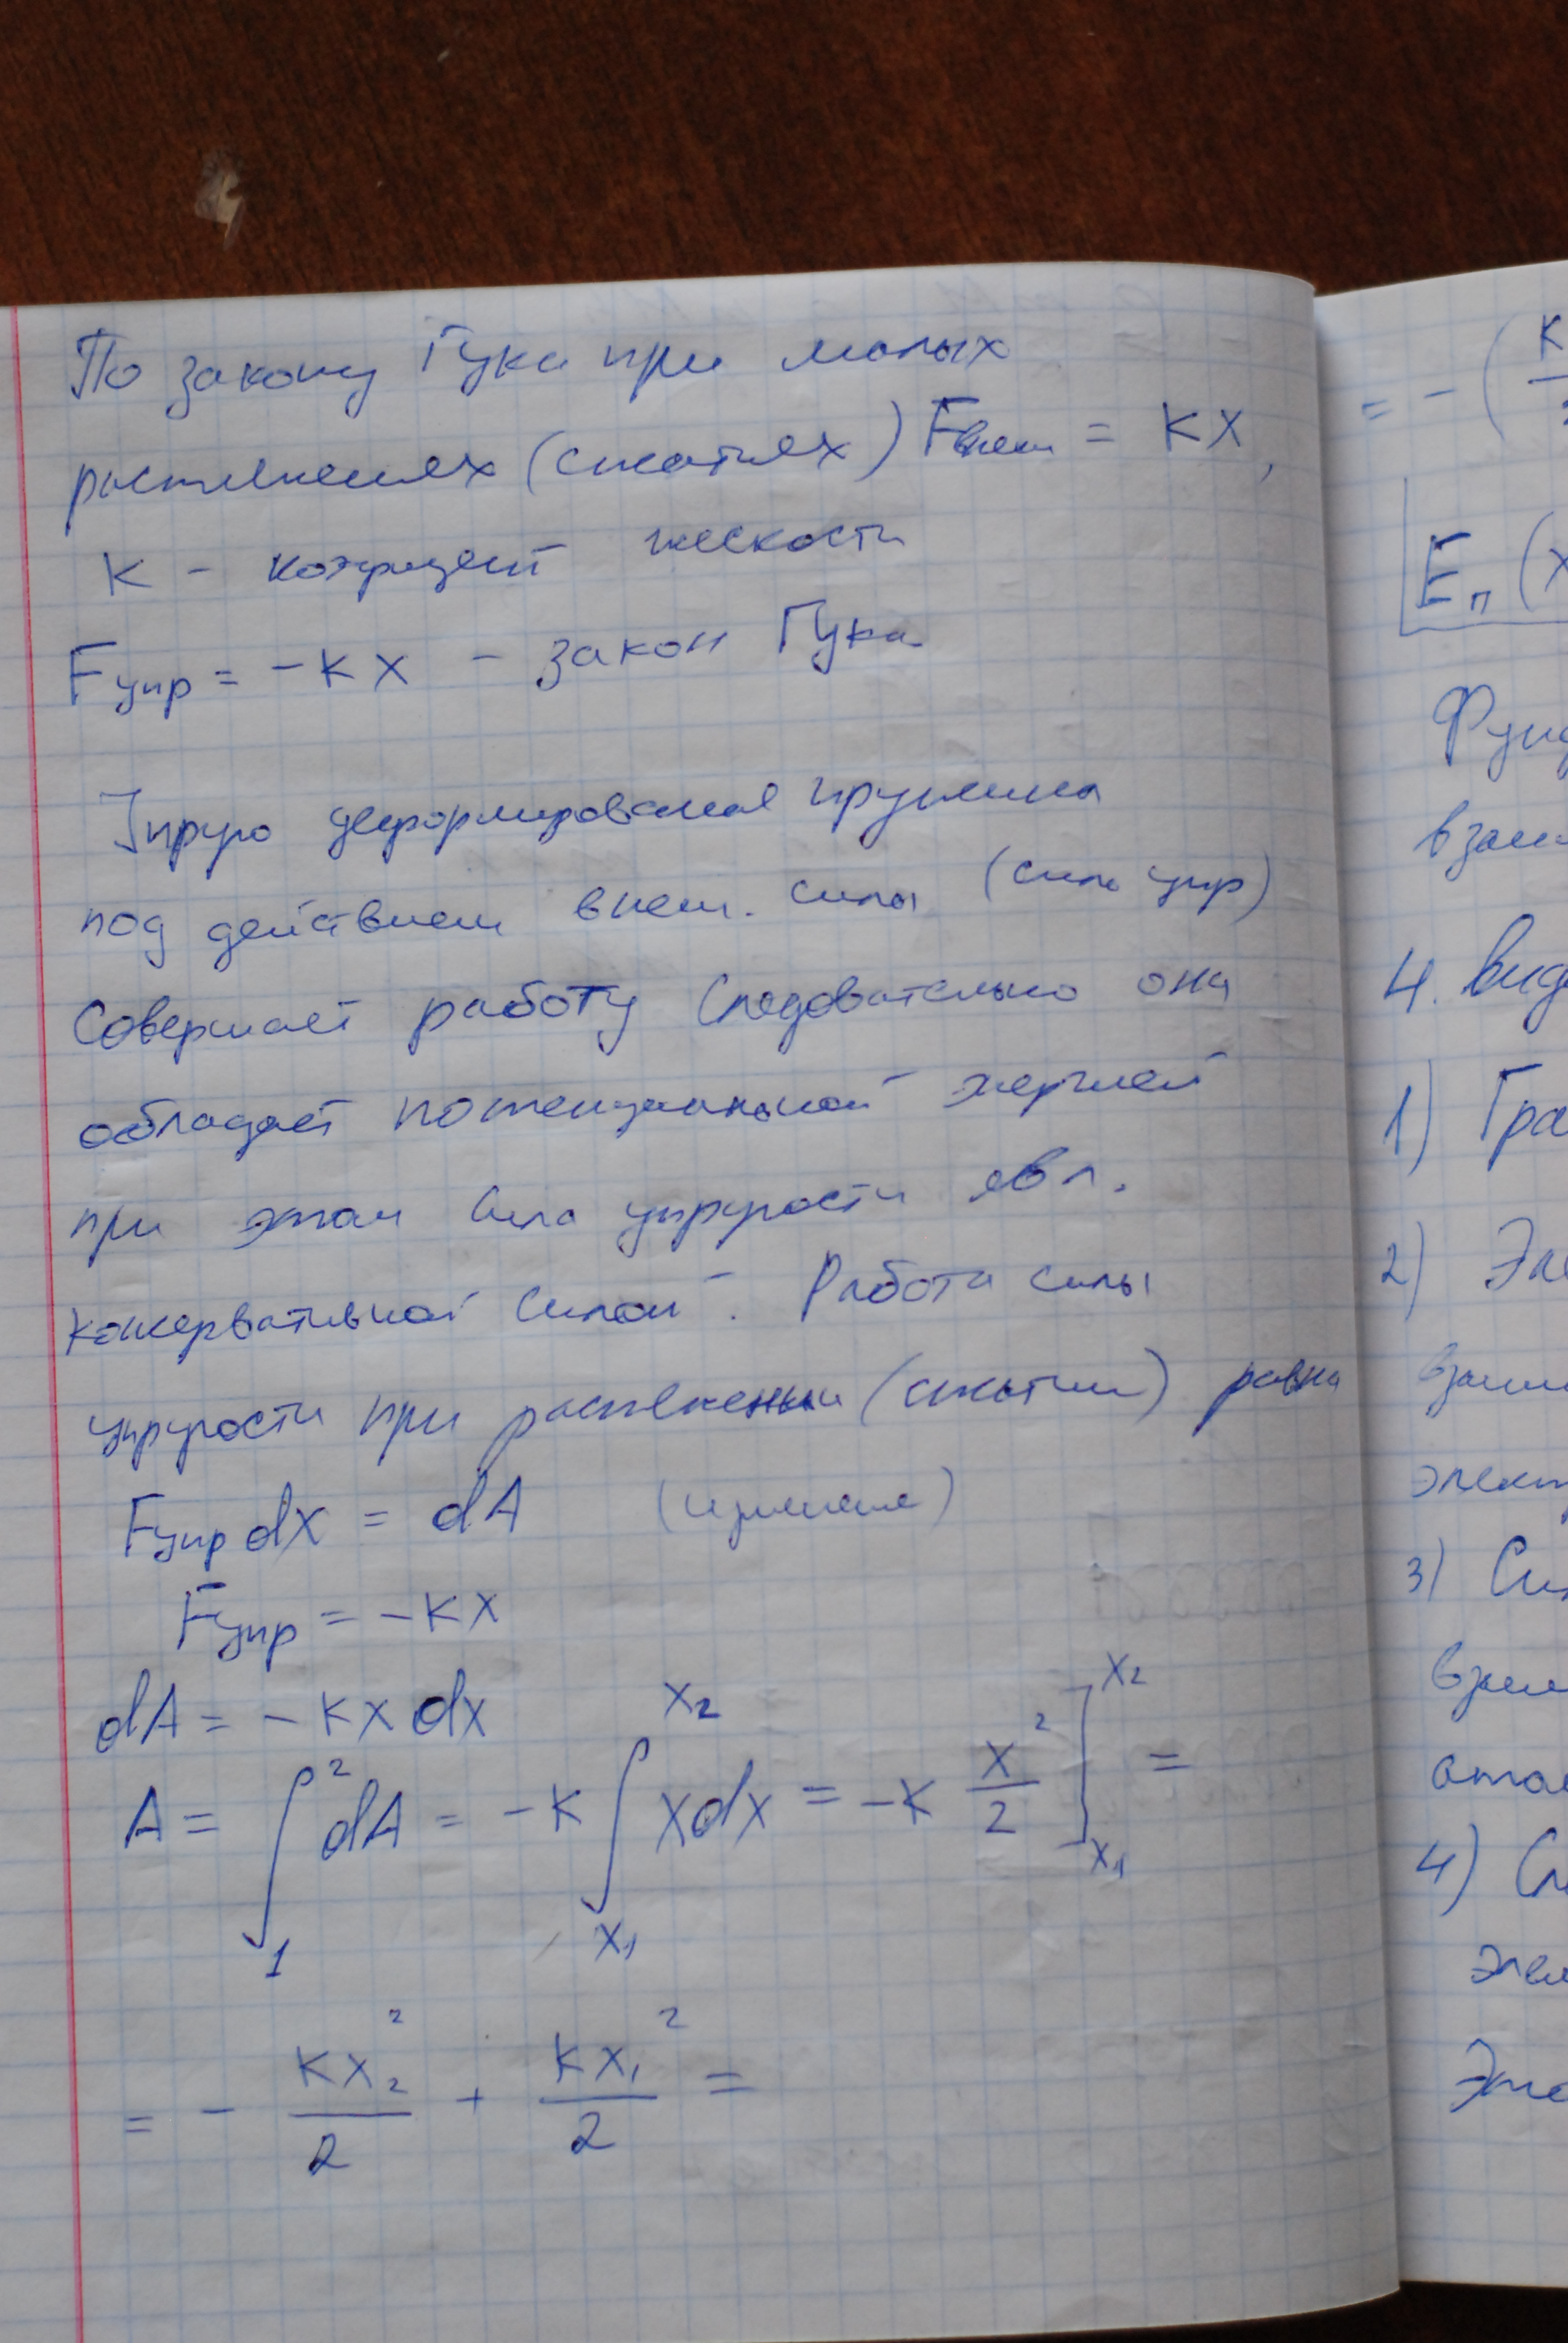 По закону Гука при малых
растяжениях (сжатиях) Fвнеш = kx,
k - коэфицент жескости
Fупр = -kx - закон Гука
Упруго деформированая пружина
под действием внеш. силы (силы упр)
совершает работу следовательно она
обладает потенциальной энергией
при этом сила упругости явл.
консервативной силой. Работа силы
упругости при растяжении (сжатии) равна
Fупр dx = dA
Fупр = -kx
dA = -kx dx
A = ∫₁² dA = -k ∫ₓ₁ˣ² x dx = -k x²/2 ]ₓ₁ˣ² =
= - kx₂²/2 + kx₁²/2 =
= - ( k
Eп (x
Фунд
взаи
4. вид
1) Гра
2) Эле
взаи
элект
3) Сил
взаи
атом
4) Сл